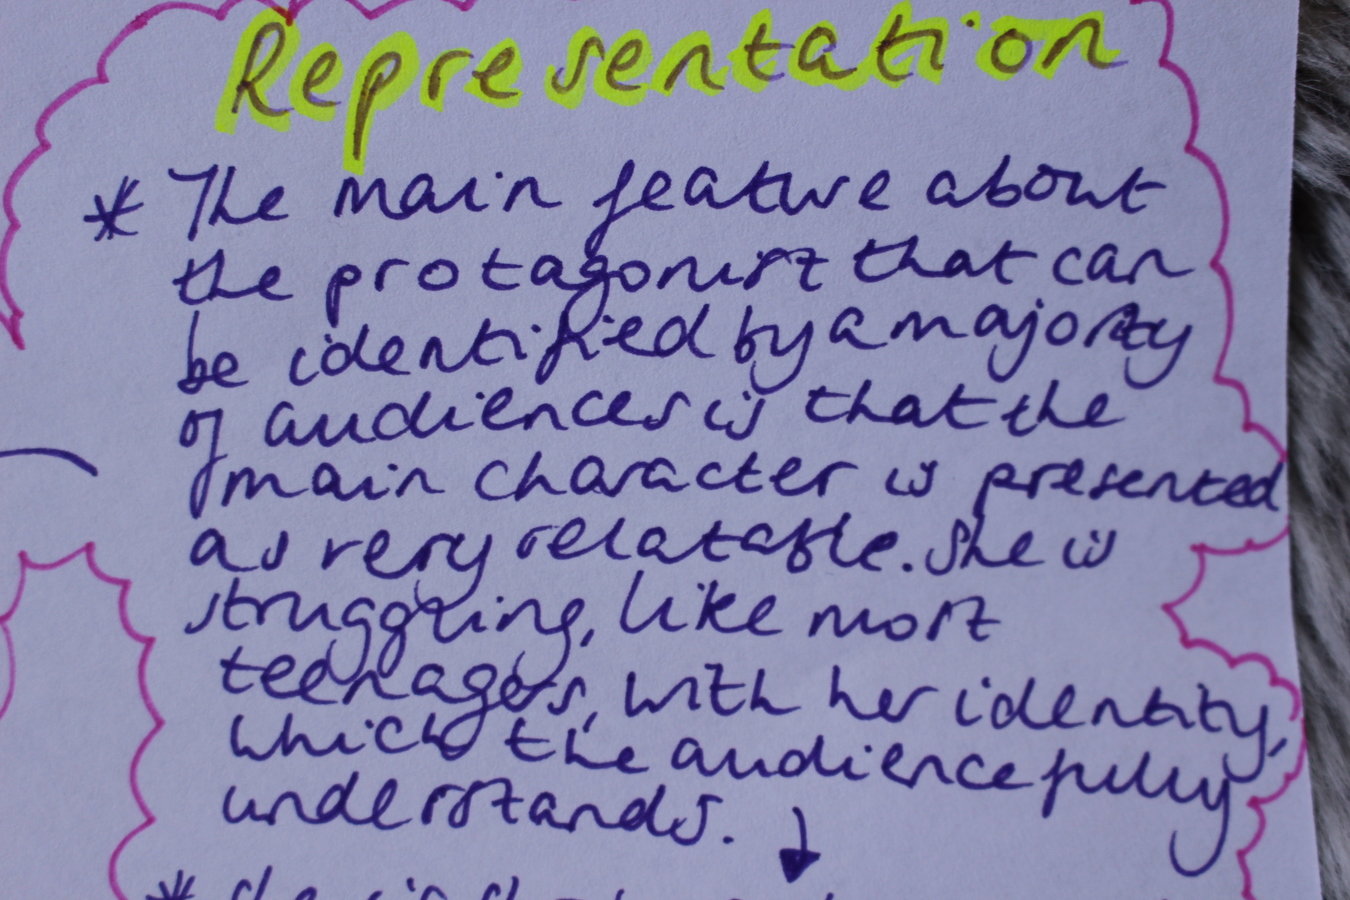 Representation
* The main feature about
the protagonist that can
be identified by a majority
of audiences is that the
main character is presented
as very relatable. She is
struggling, like most
teenagers, with her identity,
which the audience fully
understands.
*